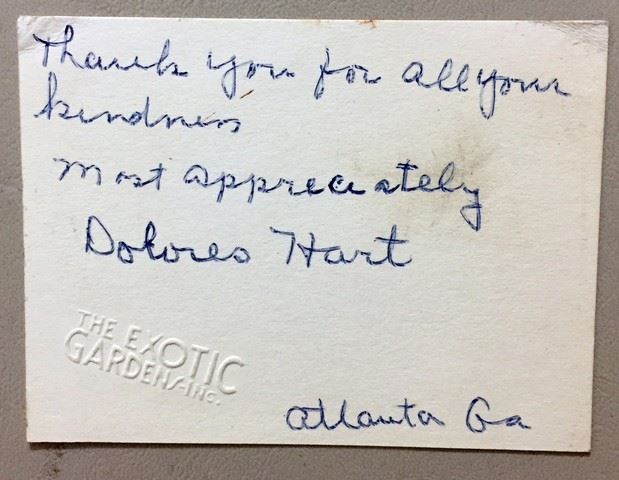 Thank you for all your
kindness
Most appreciately
Dolores Hart
THE EXOTIC
GARDENS-INC.
Atlanta Ga